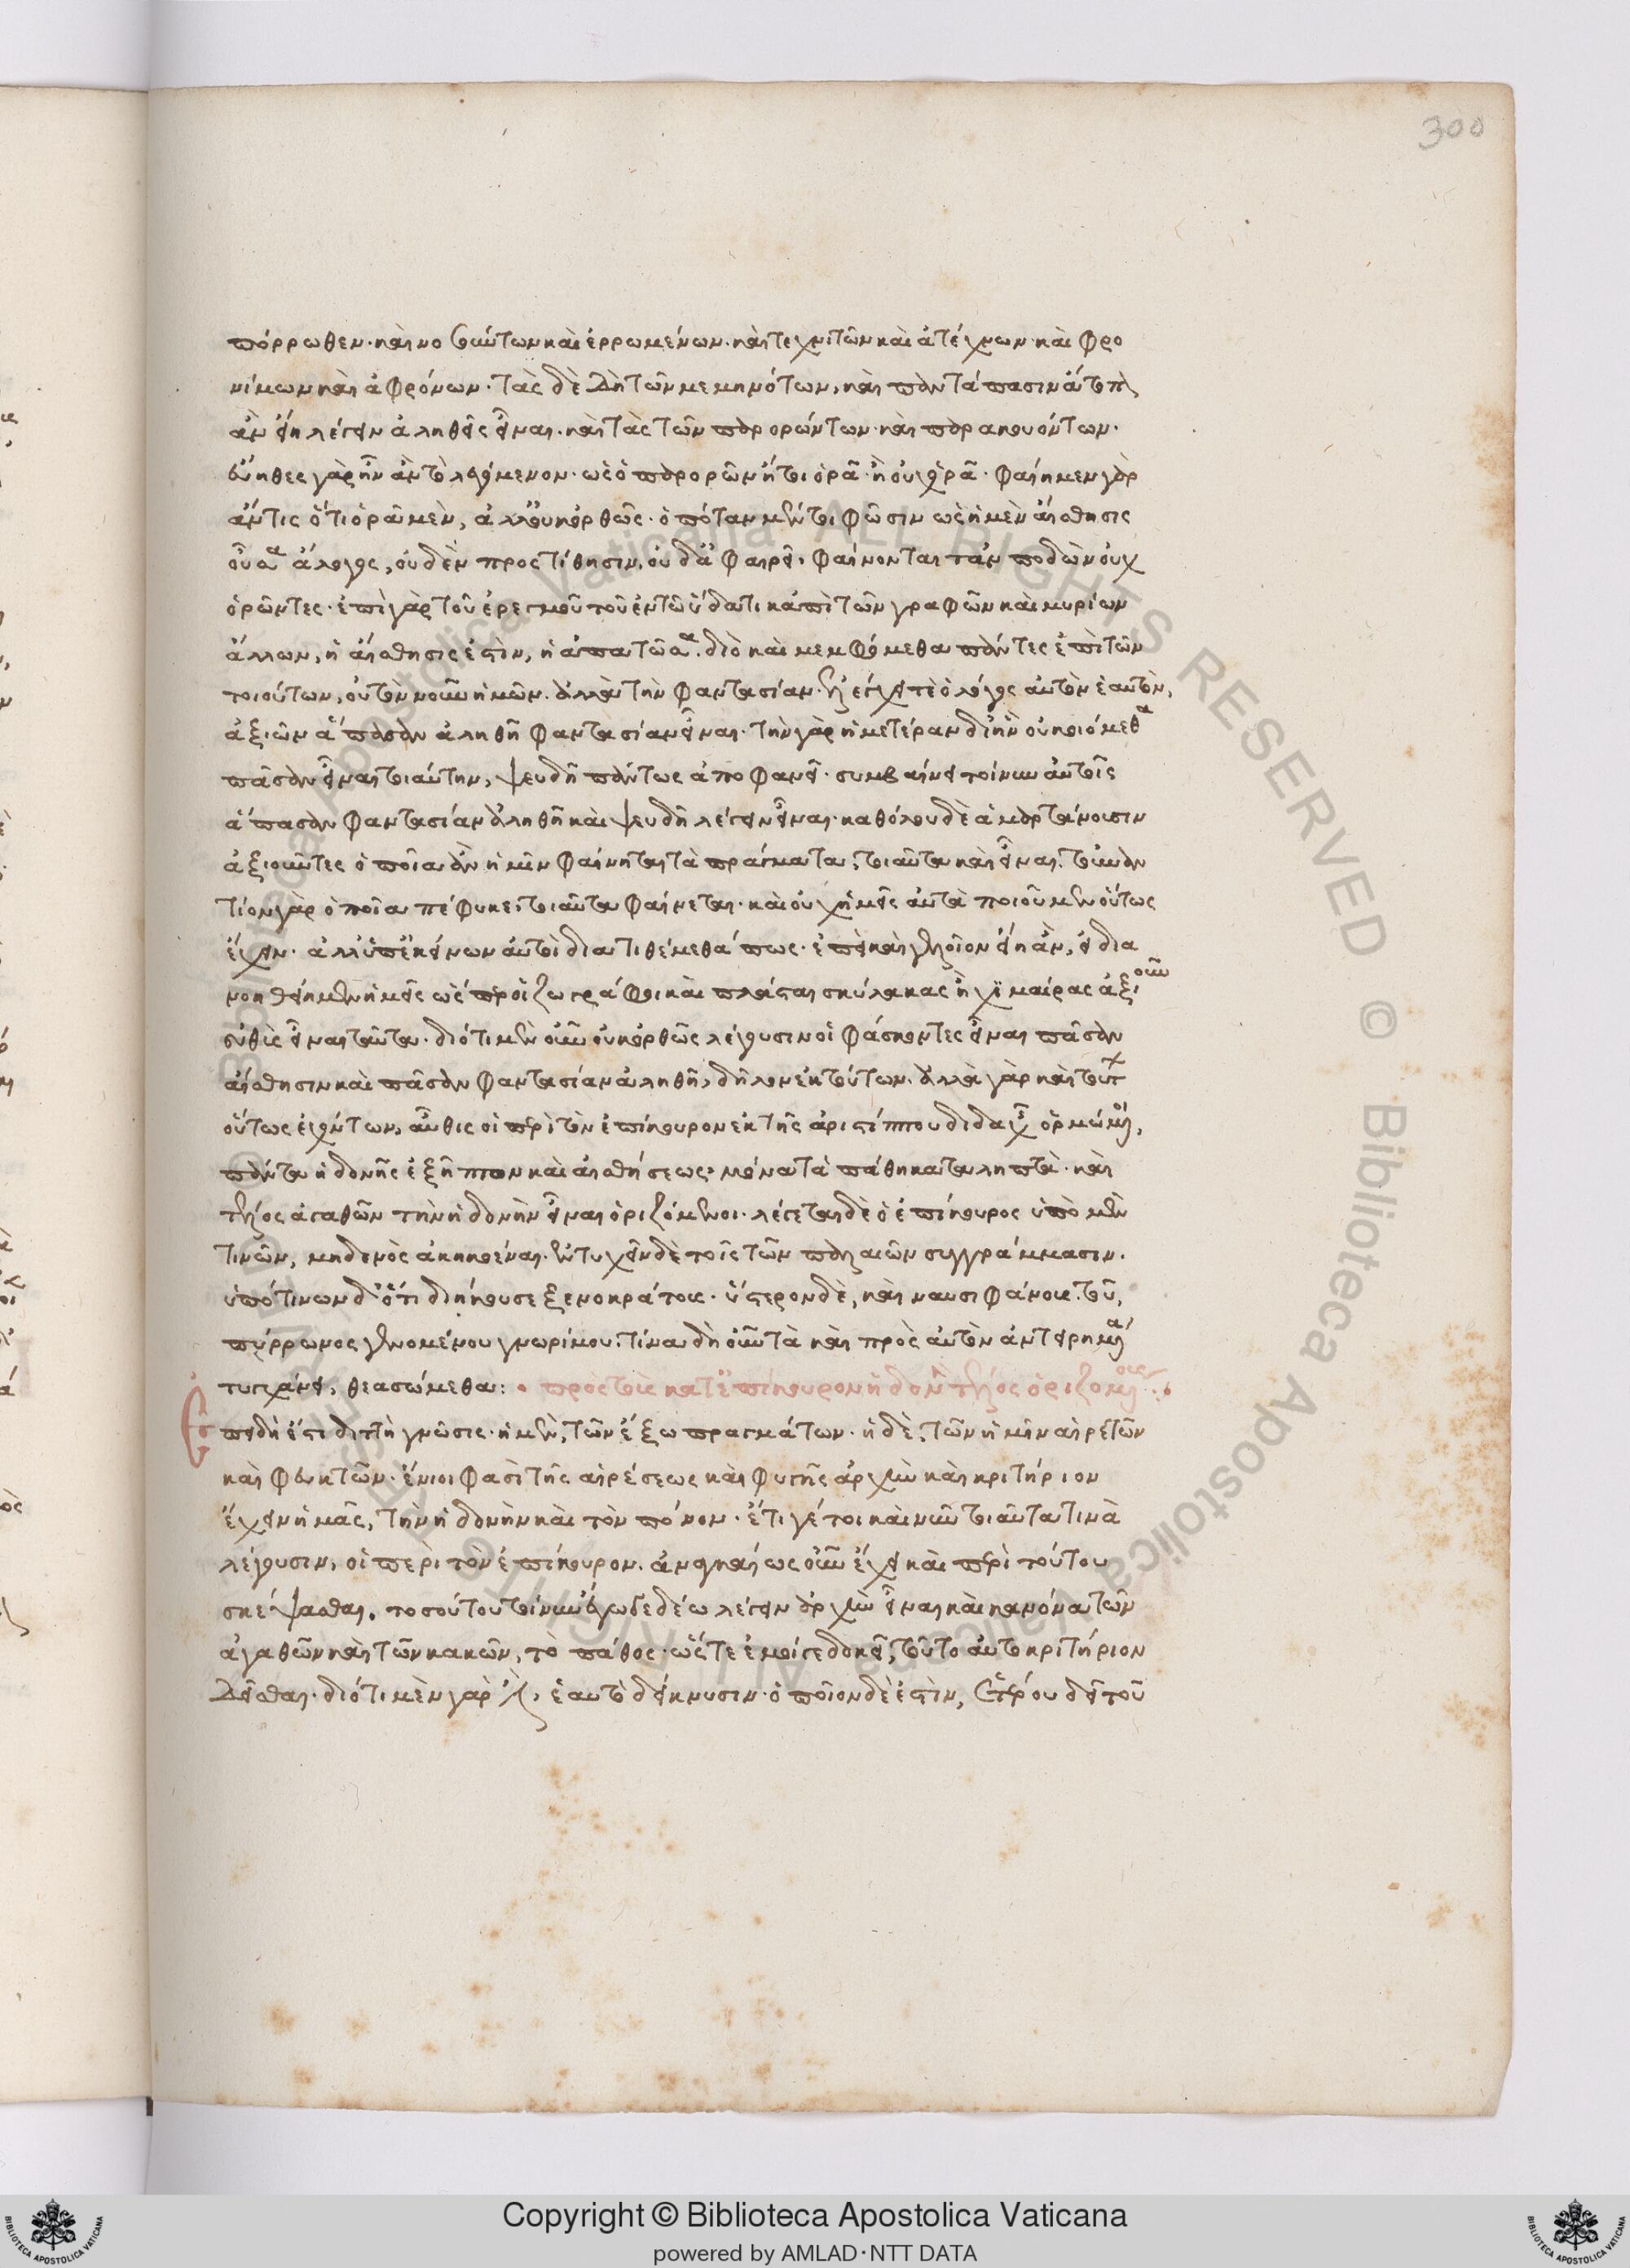 300
πόρρωθεν· καὶ νοσούντων καὶ ἐρρωμένων· καὶ τεχνιτῶν καὶ ἀτέχνων· καὶ φρο
νίμων καὶ ἀφρόνων· τὰς δὲ δὴ τῶν μεμηνότων, καὶ παντάπασιν ἄτοπον
ἂν εἴη λέγειν ἀληθεῖς εἶναι· καὶ τὰς τῶν παρορώντων· καὶ παρακουόντων·
εὔηθες γὰρ ἦν ἂν τὸ λεγόμενον· ὡς ὁ παρορῶν ἤτοι ὁρᾷ· ἢ οὐχ ὁρᾷ· φαίημεν γὰρ
ἄν τις ὅτι ὁρᾷ μὲν, ἀλλ' οὐκ ὀρθῶς· ὁπόταν μέντοι φῶσιν ὡς ἡ μὲν αἴσθησις
οὖσα ἄλογος, οὐδὲν προστίθησιν, οὐδ' ἀφαιρεῖ· φαίνονται τἀν ποδῶν οὐχ
ὁρῶντες· ἐπὶ γὰρ τοῦ ἐρετμοῦ τοῦ ἐν τῷ ὕδατι κἀπὶ τῶν γραφῶν καὶ μυρίων
ἄλλων, ἡ αἴσθησις ἐστὶν, ἡ ἀπατῶσα. διὸ καὶ μεμφόμεθα πάντες ἐπὶ τῶν
τοιούτων, οὐ τὸν νοῦν ἡμῶν. ἀλλὰ τὴν φαντασίαν· ἐλέγχει τε ὁ λόγος αὐτὸν ἑαυτὸν,
ἀξιῶν ἅπασαν ἀληθῆ φαντασίαν εἶναι· τὴν γὰρ ἡμετέραν δι' ἣν οὐκ οἰόμεθα
πᾶσαν εἶναι τοιαύτην, ψευδῆ πάντως ἀποφανεῖ· συμβαίνει τοίνυν αὐτοῖς
ἅπασαν φαντασίαν ἀληθῆ καὶ ψευδῆ λέγειν εἶναι· καθόλου δὲ ἁμαρτάνουσιν
ἀξιοῦντες ὁποῖα ἂν ἡμῖν φαίνηται τὰ πράγματα, τοιαῦτα καὶ εἶναι. τοὐναν
τίον γὰρ ὁποῖα πέφυκε, τοιαῦτα φαίνεται· καὶ οὐχ ἡμεῖς αὐτὰ ποιοῦμεν οὕτως
ἔχειν· ἀλλ' ὑπ' ἐκείνων αὐτοὶ διατιθέμεθά πως· ἐπεὶ καὶ γελοῖον εἴη ἂν, εἰ δια
νοηθείημεν ἡμεῖς ὥσπερ οἱ ζωγράφοι καὶ πλάσται σκύλακας ἢ χιμαίρας ἀξιοῦν
εὐθὺς εἶναι ταῦτα· διότι μὲν οὖν οὐκ ὀρθῶς λέγουσιν οἱ φάσκοντες εἶναι πᾶσαν
αἴσθησιν καὶ πᾶσαν φαντασίαν ἀληθῆ, δῆλον ἐκ τούτων. ἀλλὰ γὰρ καὶ τούτων
οὕτως ἐχόντων, αὖθις οἱ περὶ τὸν ἐπίκουρον ἐκ τῆς ἀριστίππου διδαχῆς ὁρμώμενοι,
πάντα ἡδονῆς ἐξῆπτον καὶ αἰσθήσεως· μόνα τὰ πάθη καταληπτὰ· καὶ
τέλος ἀγαθῶν τὴν ἡδονὴν εἶναι ὁριζόμενοι· λέγεται δὲ ὁ ἐπίκουρος ὑπὸ μέν
τινῶν, μηδενὸς ἀκηκοέναι· ἐντυχεῖν δὲ τοῖς τῶν παλαιῶν συγγράμμασιν·
ὑπό τινων δ' ὅτι διήκουσε ξενοκράτους· ὕστερον δὲ, καὶ ναυσιφάνους. τοῦ,
πύρρωνος γενομένου γνωρίμου. τίνα δὴ οὖν τὰ καὶ πρὸς αὐτὸν ἀντειρημένα
τυγχάνει, θεασώμεθα: · πρὸς τοὺς κατ' ἐπίκουρον ἡδονὴν τέλος ὁριζομένους:·
Ἐπειδή ἐστι διττὴ γνῶσις· ἡ μὲν, τῶν ἔξω πραγμάτων· ἡ δὲ, τῶν ἡμῖν αἱρετῶν
καὶ φευκτῶν· ἔνιοι φασὶ τῆς αἱρέσεως καὶ φυγῆς ἀρχὴν καὶ κριτήριον
ἔχειν ἡμᾶς, τὴν ἡδονὴν καὶ τὸν πόνον· ἔτι γέ τοι καὶ νῦν τοιαῦτα τινὰ
λέγουσιν, οἱ περὶ τὸν ἐπίκουρον. ἀναγκαίως οὖν ἔχει καὶ περὶ τούτου
σκέψασθαι. τοσούτου τοίνυν ἔγωγε δέω λέγειν ἀρχὴν εἶναι καὶ κανόνα τῶν
ἀγαθῶν καὶ τῶν κακῶν, τὸ πάθος· ὥστε ἐμοίγε δοκεῖ, τοῦτο αὐτὸ κριτηρίου
δεῖσθαι· διότι μὲν γάρ ἐστιν, ἑαυτὸ δείκνυσιν· ὁποῖον δὲ ἐστὶν, ἑτέρου δεῖ τοῦ
Copyright © Biblioteca Apostolica Vaticana
powered by AMLAD·NTT DATA